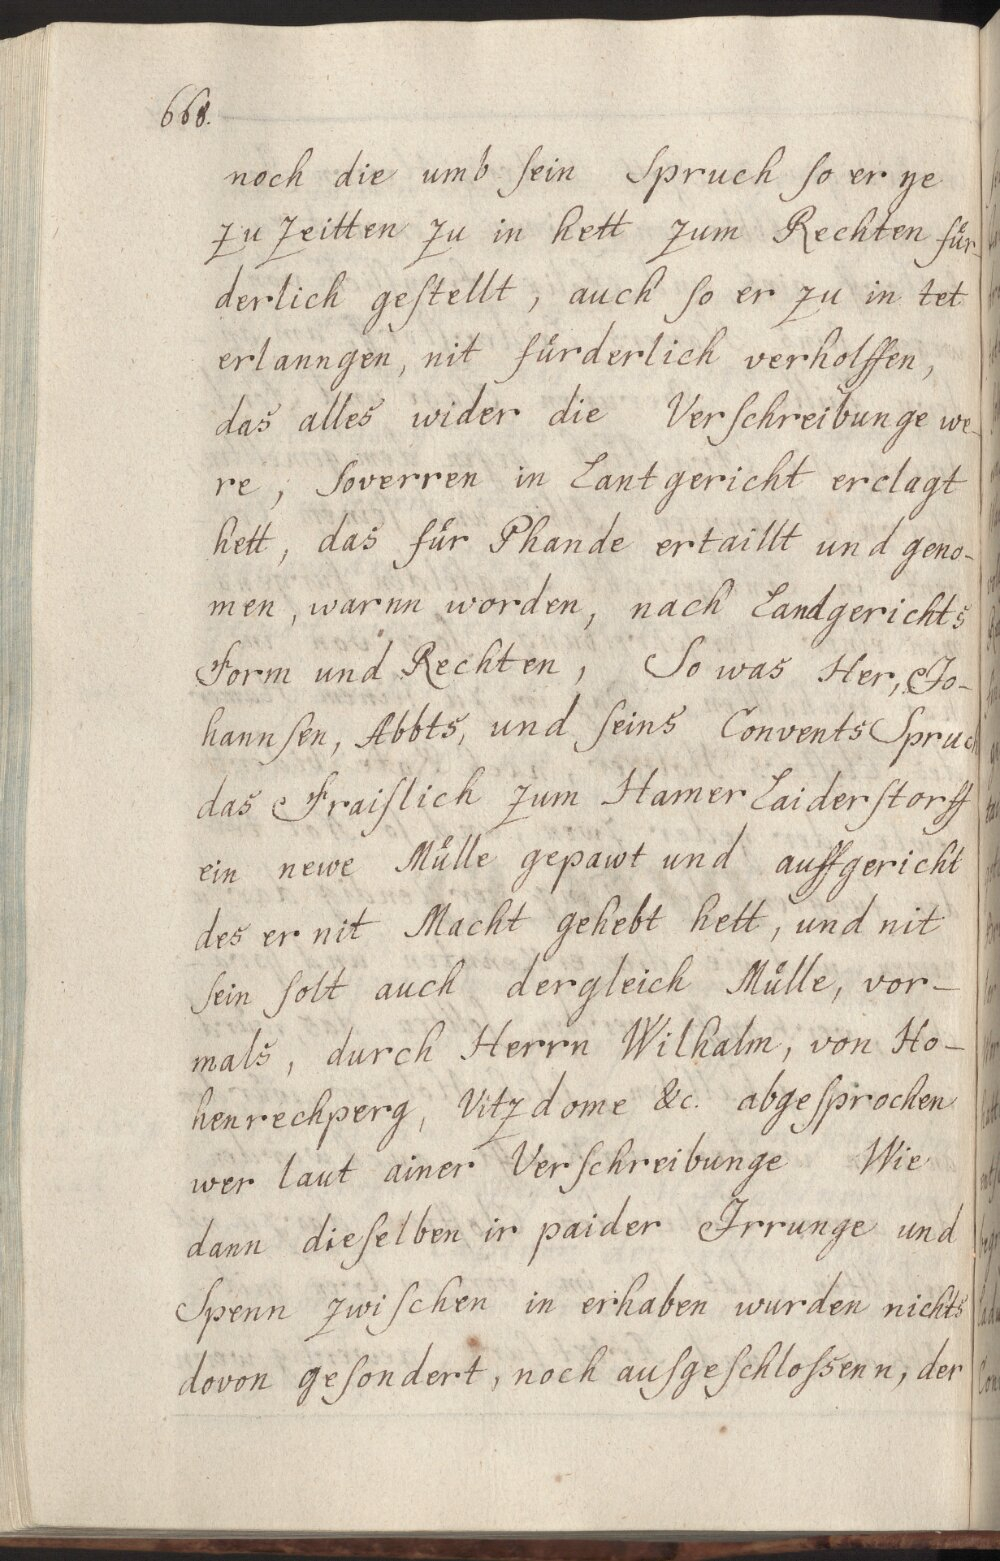 668.
noch die umb sein Spruch so er ye
zu Zeitten zu in hett zum Rechten für-
derlich gestellt, auch so er zu in tet
erlanngen, nit fürderlich verholffen,
das alles wider die Verschreibunge we-
re, Soverren in Lantgericht erclagt
hett, das für Phande ertaillt und geno-
men, warnn worden, nach Landgerichts
Form und Rechten, So was Her, Jo-
hannsen, Abbts, und seins Convents Spruch
das Fraislich zum Hamer Laiderstorff
ein newe Mülle gepawt und auffgericht
des er nit Macht gehebt hett, und nit
sein solt auch dergleich Mülle, vor-
mals, durch Herrn Wilhalm, von Ho-
henrechperg, Vitzdome &c. abgesprochen
wer laut ainer Verschreibunge Wie
dann dieselben ir paider Irrunge und
Spenn zwischen in erhaben wurden nichts
dovon gesondert, noch ausgeschlossenn, der